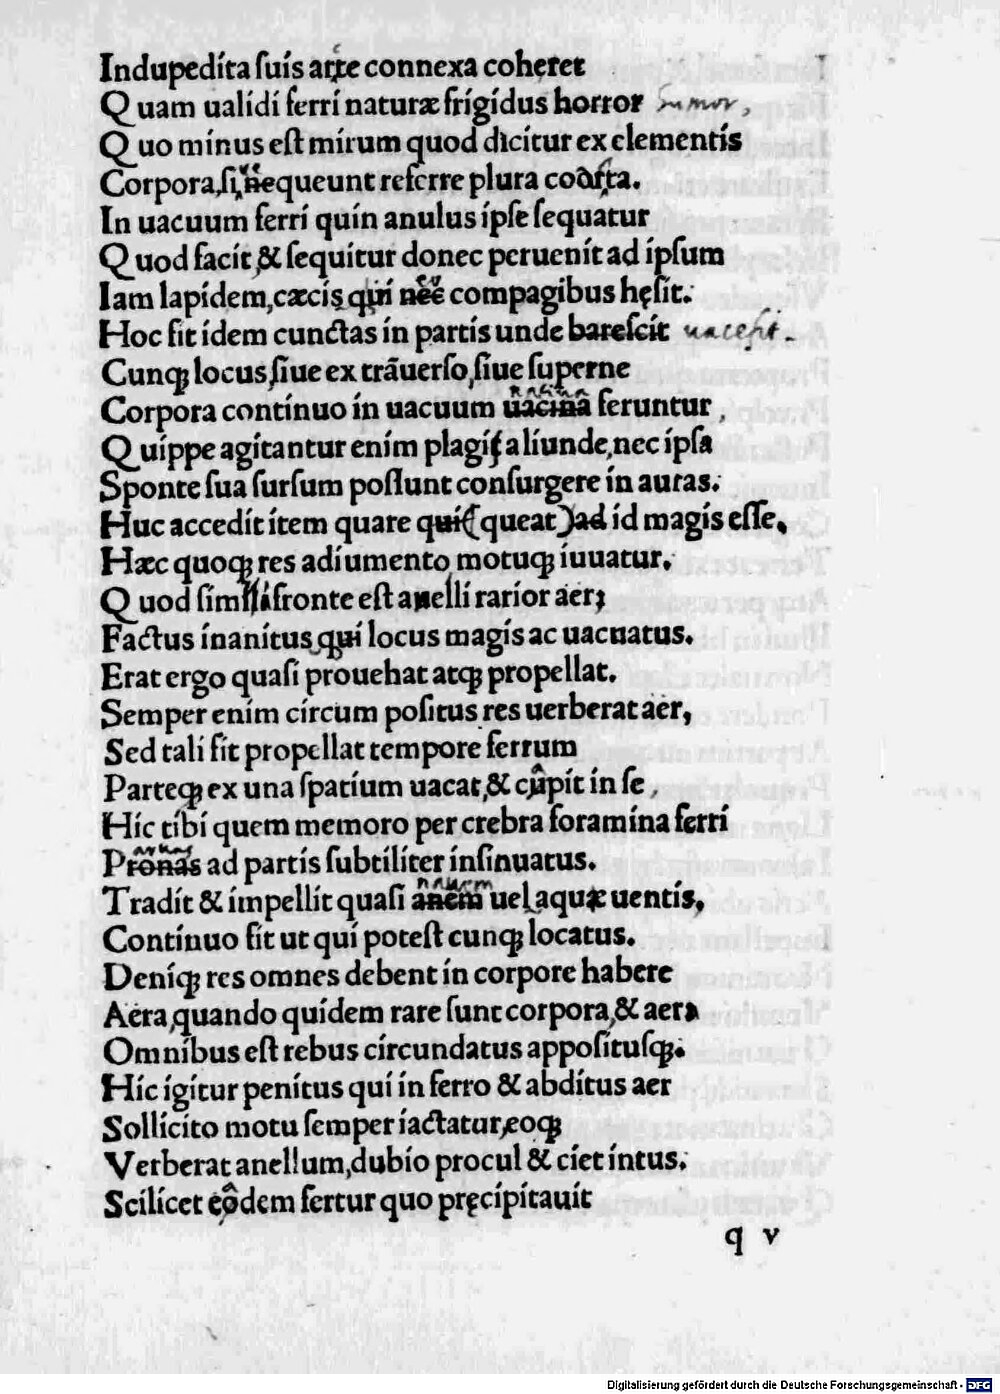 Indupedita suis arte connexa coheret
Quam ualidi ferri naturæ frigidus horror humor,
Quo minus est mirum quod dicitur ex elementis
Corpora, si nequeunt referre plura coarta.
In uacuum ferri quin anulus ipse sequatur
Quod facit, & sequitur donec peruenit ad ipsum
Iam lapidem, cæcis qui neé compagibus hęsit.
Hoc fit idem cunctas in partis unde barescit uacesit.
Cunqꝫ locus, siue ex trãuerso, siue superne
narina
Corpora continuo in uacuum uacina feruntur,
Quippe agitantur enim plagis aliunde, nec ipsa
Sponte sua sursum possunt consurgere in auras.
Huc accedit item quare qui (queat) ad id magis esse,
Hæc quoqꝫ res adiumento motuqꝫ iuuatur.
Quod simili a fronte est anelli rarior aer;
Factus inanitus qui locus magis ac uacuatus.
Erat ergo quasi prouehat atqꝫ propellat.
Semper enim circum positus res uerberat aer,
Sed tali fit propellat tempore ferrum
Parteqꝫ ex una spatium uacat, & cupit in se,
Hic tibi quem memoro per crebra foramina ferri
Pronas ad partis subtiliter insinuatus.
nauem
Tradit & impellit quasi anem uel aquæ uentis,
Continuo fit ut qui potest cunqꝫ locatus.
Deniqꝫ res omnes debent in corpore habere
Aera, quando quidem rare sunt corpora, & aer
Omnibus est rebus circundatus appositusqꝫ.
Hic igitur penitus qui in ferro & abditus aer
Sollicito motu semper iactatur, eoqꝫ
Verberat anellum, dubio procul & ciet intus.
Scilicet eodem fertur quo pręcipitauit
q v
Digitalisierung gefördert durch die Deutsche Forschungsgemeinschaft - DFG